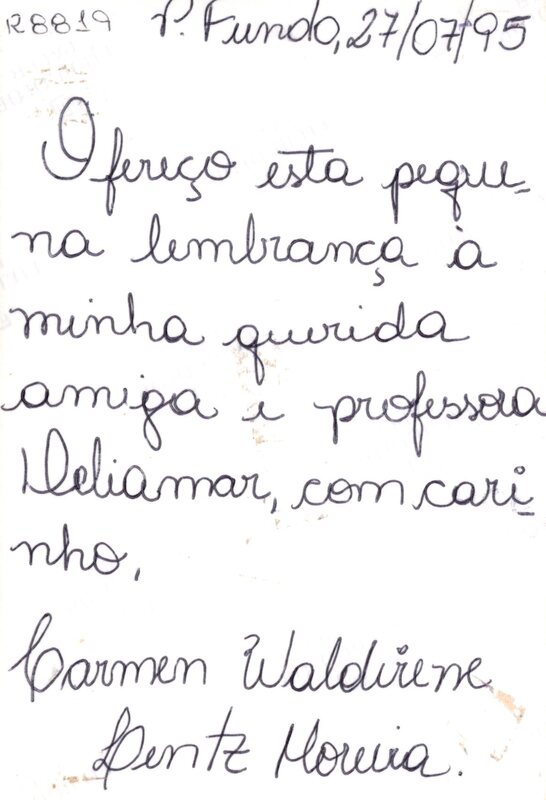 R8819
P. Fundo, 27/07/95
Ofereço esta peque-
na lembrança à
minha querida
amiga e professora
Deliamar, com cari-
nho,
Carmen Waldirene
Lentz Moreira.